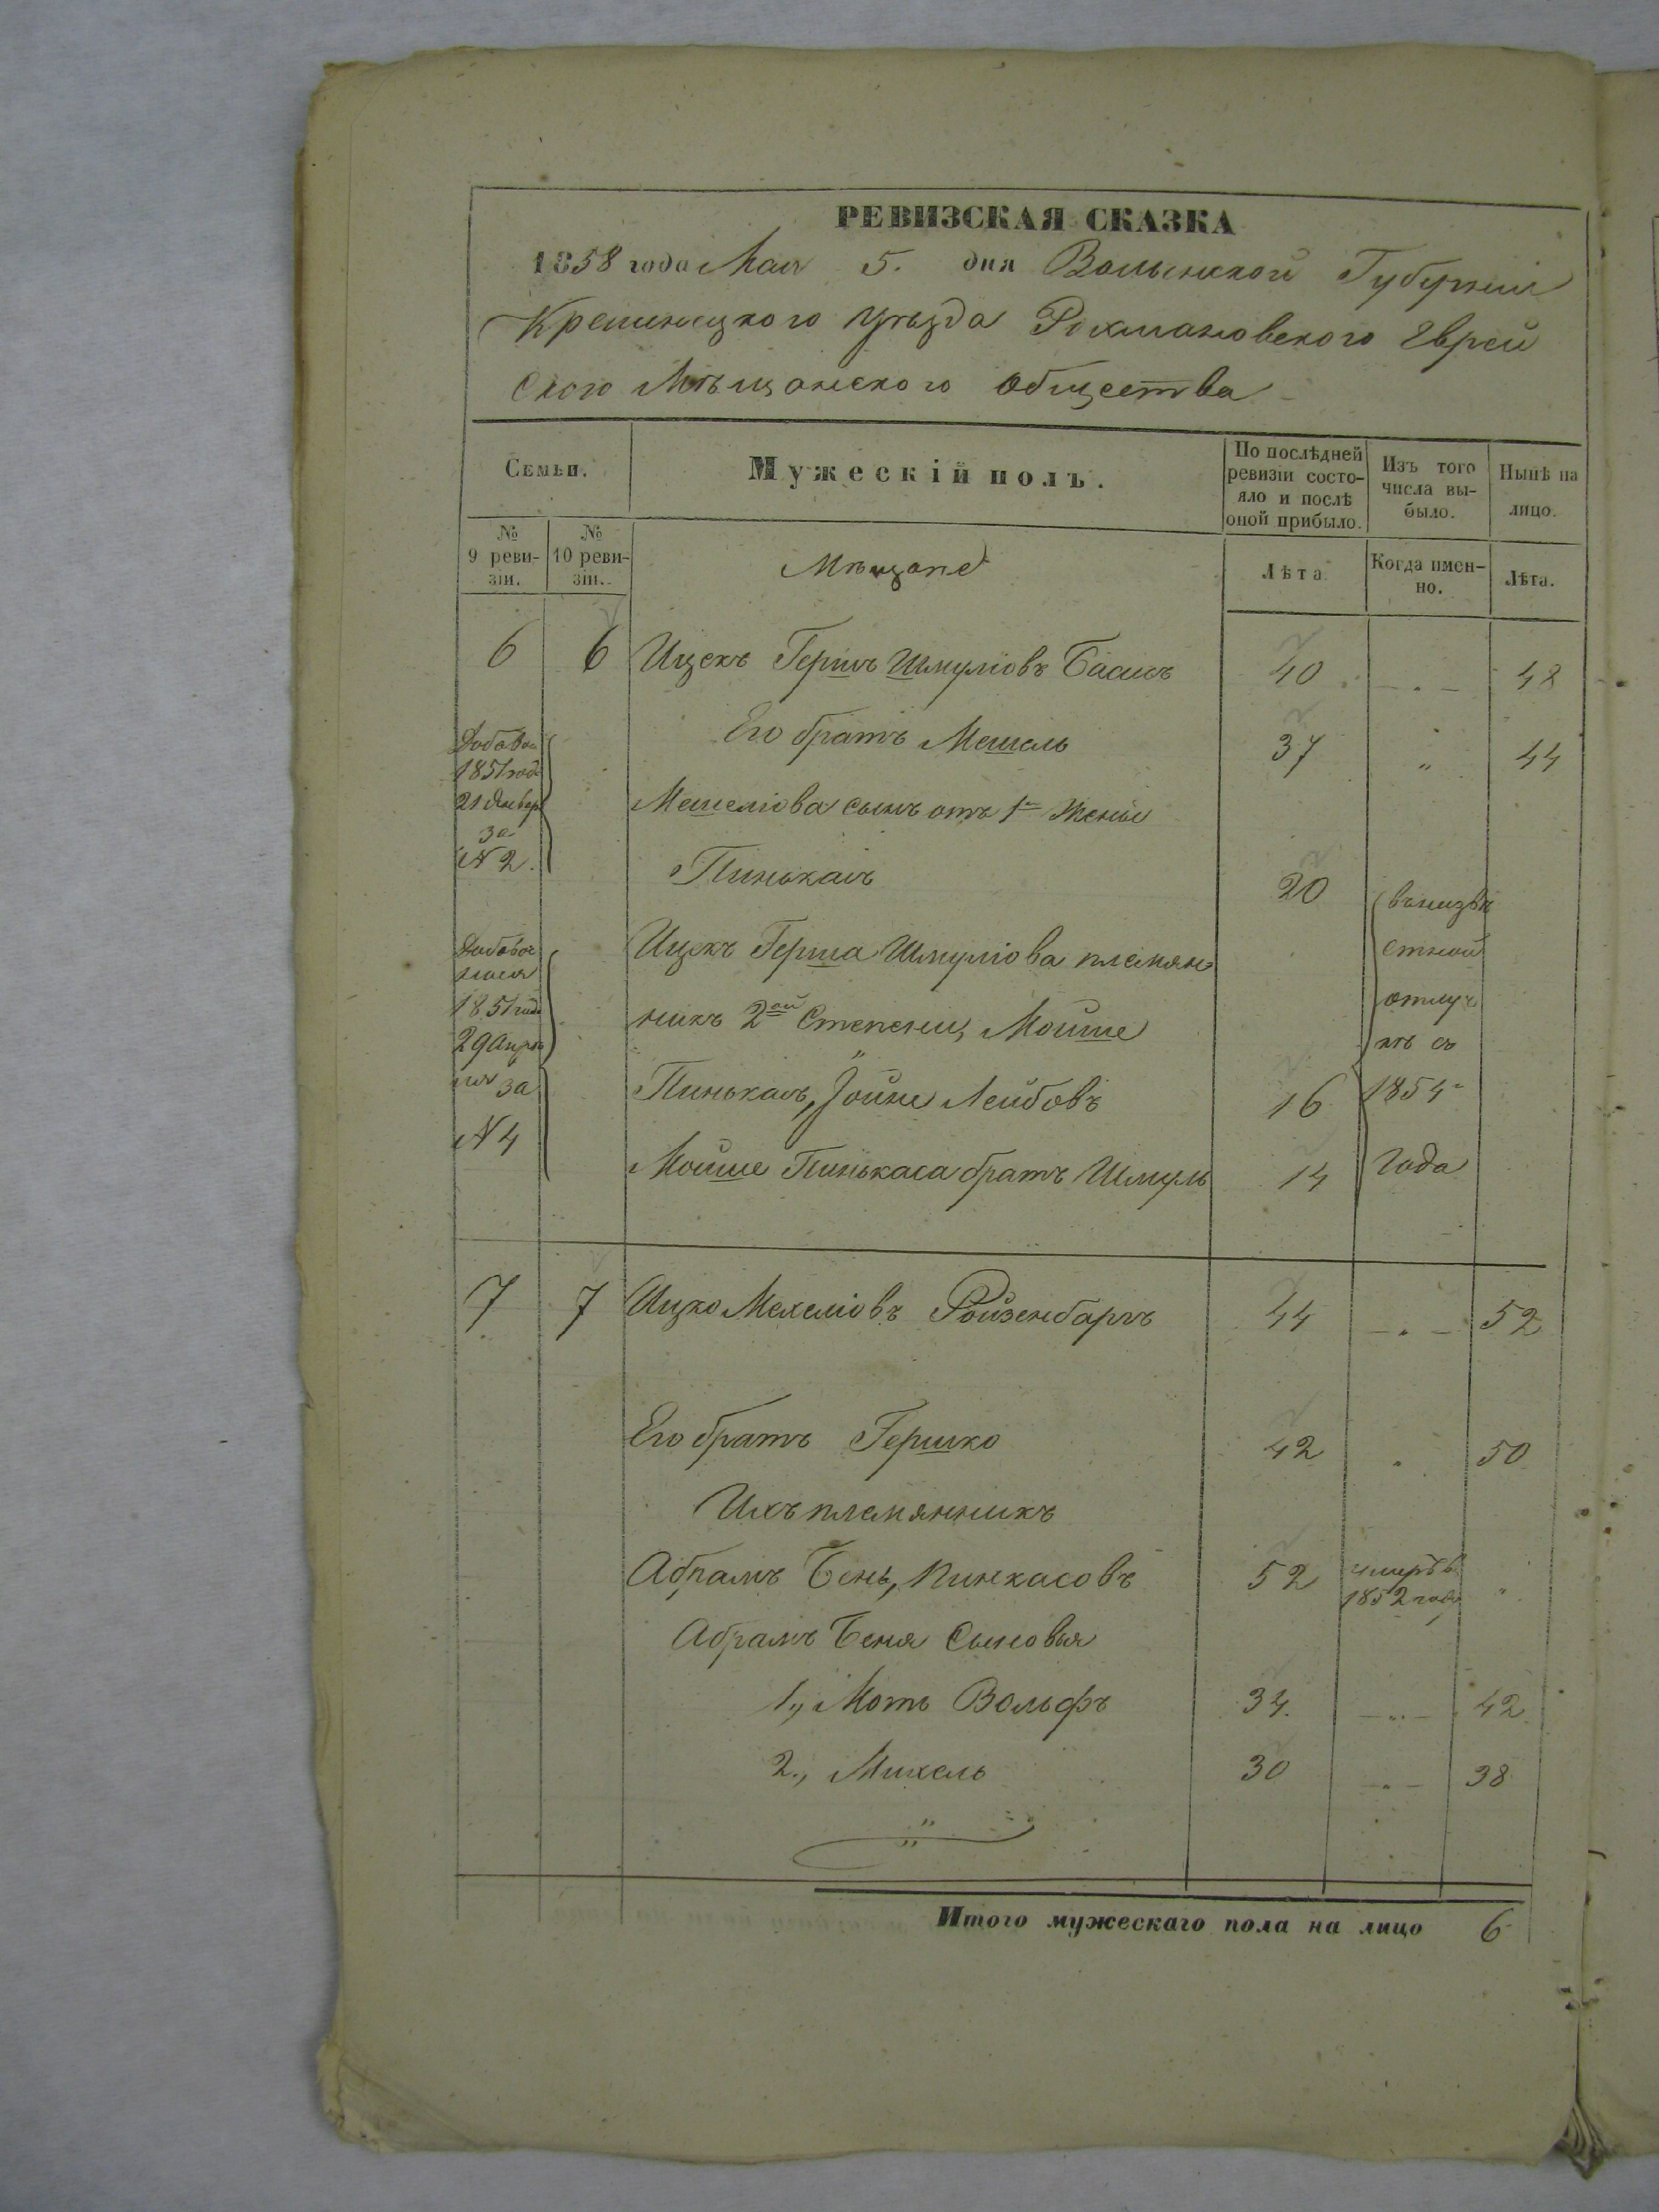 РЕВИЗСКАЯ СКАЗКА
1858 года Мая 5. дня Волынской Губернии
Кременецкого Уѣзда Рохмановского Еврей
ского Мѣщанского общества
Семьи.
Мужескій полъ.
По послѣдней ревизіи состояло и послѣ оной прибыло.
Изъ того числа выбыло.
Нынѣ на лицо.
№ 9 ревизіи.
№ 10 ревизіи.
Мѣщане
Лѣта
Когда именно.
Лѣта.
6 6 Ицекъ Гершъ Шмуліовъ Басисъ 40 - „ - 48
Его братъ Мешель 37 „ 44
1851 года
21 Января
за
№ 2.
Мешеліова сынъ отъ 1й жены
Пинькасъ 20
Ицекъ Герша Шмуліова племян
никъ 2ой Степени, Мойше
Пинькасъ, Іойне Лейбовъ 16
Мойше Пинькаса братъ Шмуль 14
въ неизвѣ
стной
отлуч
кѣ съ
1854го
года
1851 года
29 Апрѣ
ля за
№ 4
7 7 Ицко Мехеліовъ Ройзенбаргъ 44 - „ - 52
Его братъ Гершко 42 „ 50
Ихъ племянникъ
Абрамъ Бень, Пинкасовъ 52 умеръ в 1852 году „
Абрамъ Беня Сыновья
1., Моть Вольфъ 34. - „ - 42
2., Михель 30 - „ - 38
Итого мужескаго пола на лицо 6